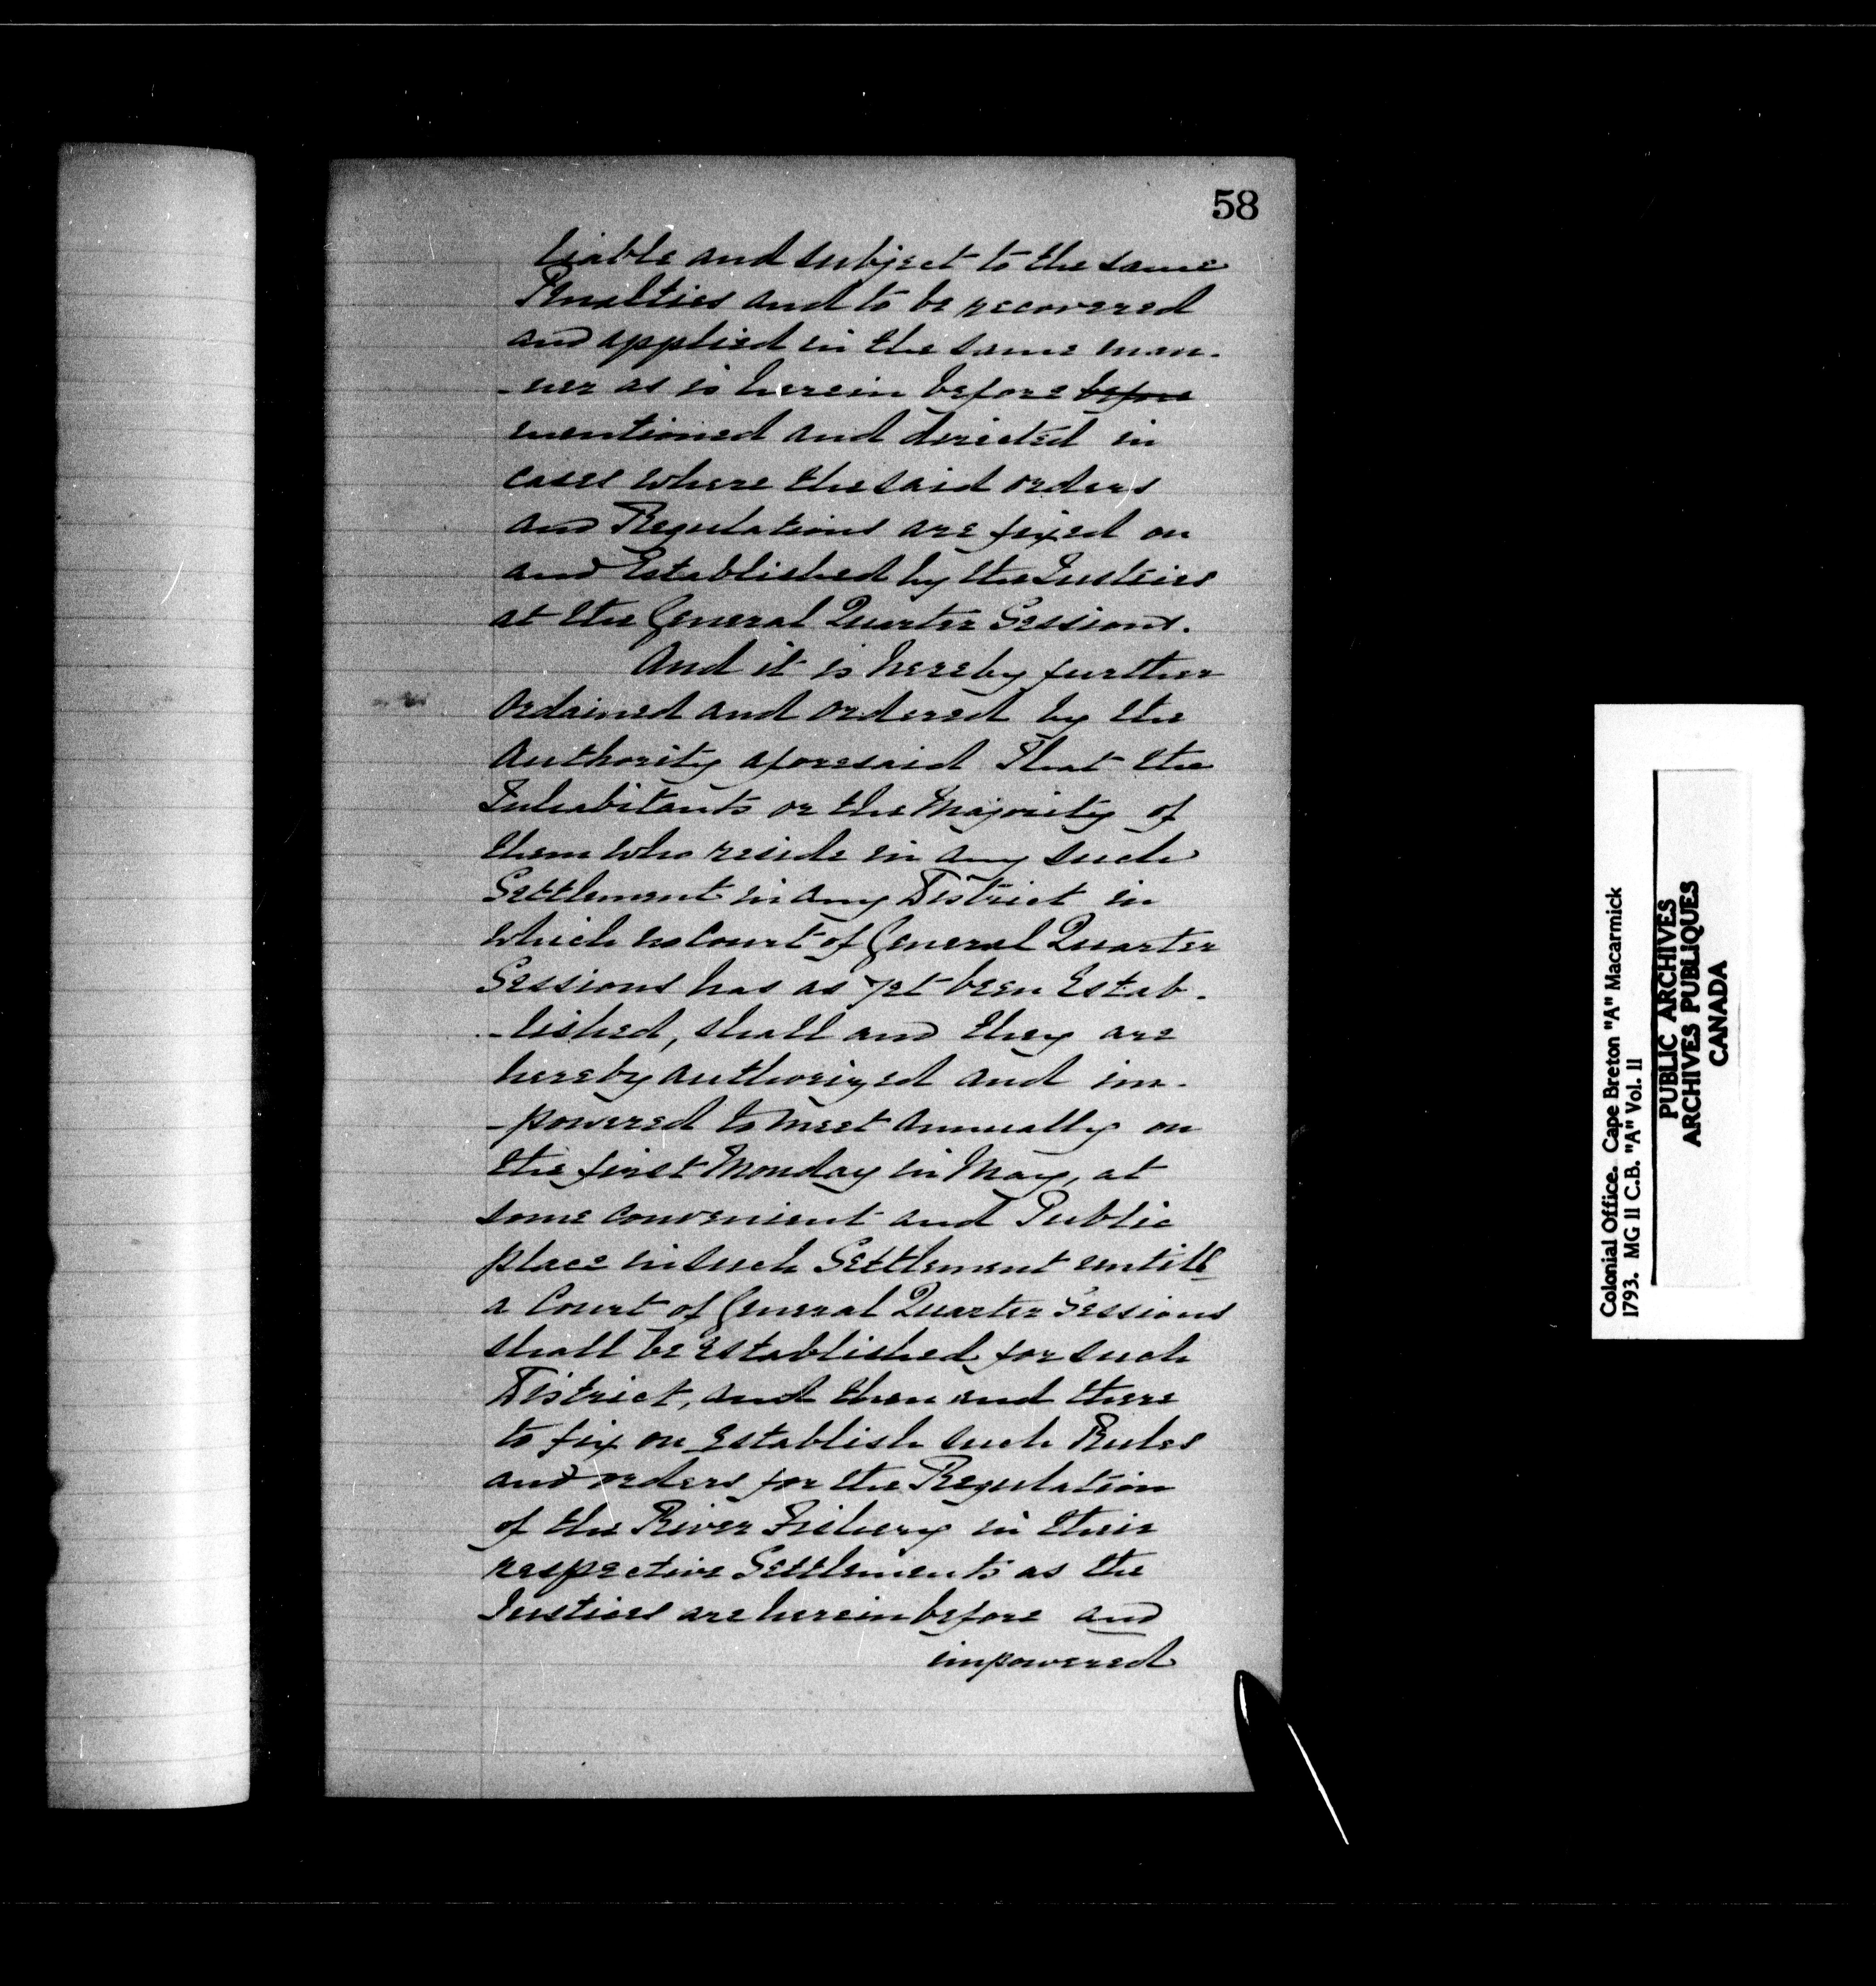 58
liable and subject to the same
Penalties and to be recovered
and applied in the same man-
-ner as is herein before before
mentioned and directed in
cases where the said orders
and Regulations are fixed on
and Established by the Justices
at the General Quarter Sessions.
And it is hereby further
ordained and ordered by the
authority aforesaid That the
Inhabitants or the Majority of
them who reside in any such
Settlement in any District in
which no Court of General Quarter
Sessions has as yet been Estab-
-lished, shall and they are
hereby authorized and im-
-powered to meet annually on
the first Monday in May, at
some convenient and Public
place in such Settlement untill
a Court of General Quarter Sessions
shall be Established for such
District, and then and there
to fix on Establish such Rules
and orders for the Regulation
of the River Fishery in their
respective Settlements as the
Justices are herein before and
impowered
Colonial Office. Cape Breton "A" Macarmick
1793. MG 11 C.B. "A" Vol. 11
PUBLIC ARCHIVES
ARCHIVES PUBLIQUES
CANADA